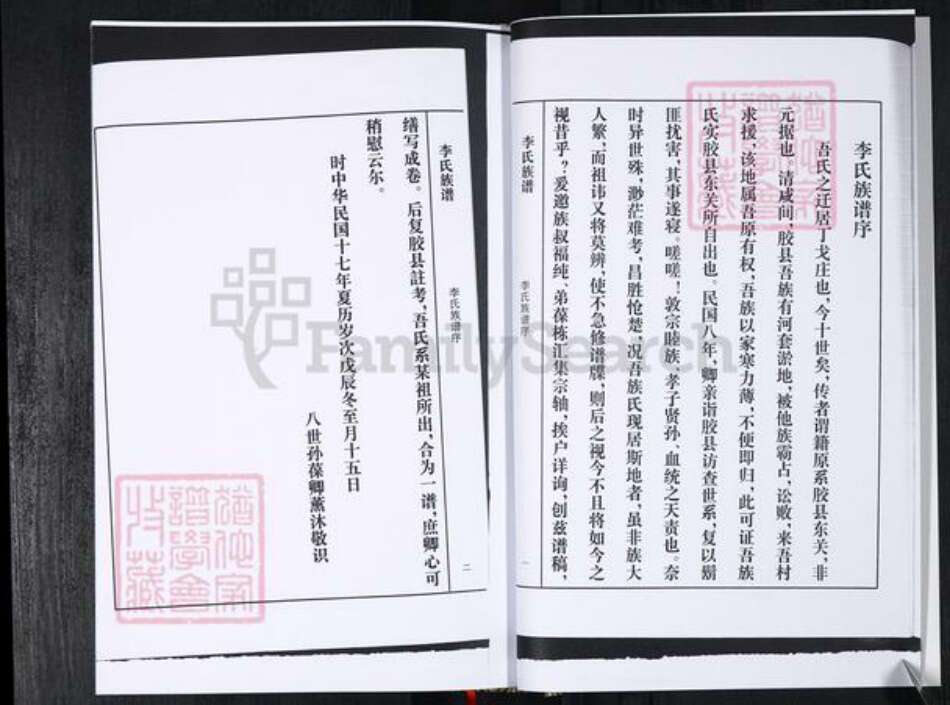 李氏族谱序
吾氏之迁居丁戈庄也，今十世矣，传者谓籍原系胶县东关，非
元据也。清咸间，胶县吾族有河套淤地，被他族霸占，讼败，来吾村
求援，该地属吾原有权，吾族以家寒力薄，不便即归，此可证吾族
氏实胶县东关所自出也。民国八年，卿亲诣胶县访查世系，复以剐
匪扰害，其事遂寝。嗟嗟！敦宗睦族、孝子贤孙、血统之天责也。奈
时异世殊，渺茫难考，昌胜怆楚，况吾族氏现居斯地者，虽非族大
人繁，而祖讳又将莫辨，使不急修谱牒，则后之视今不且将如今之
视昔乎？爰邀族叔福纯、弟葆栋汇集宗轴，挨户详询，创兹谱稿，
李氏族谱
李氏族谱序
一
李氏族谱
李氏族谱序
二
缮写成卷。后复胶县註考，吾氏系某祖所出，合为一谱，庶卿心可
稍慰云尔。
时中华民国十七年夏历岁次戊辰冬至月十五日
八世孙葆卿薰沐敬识
FamilySearch